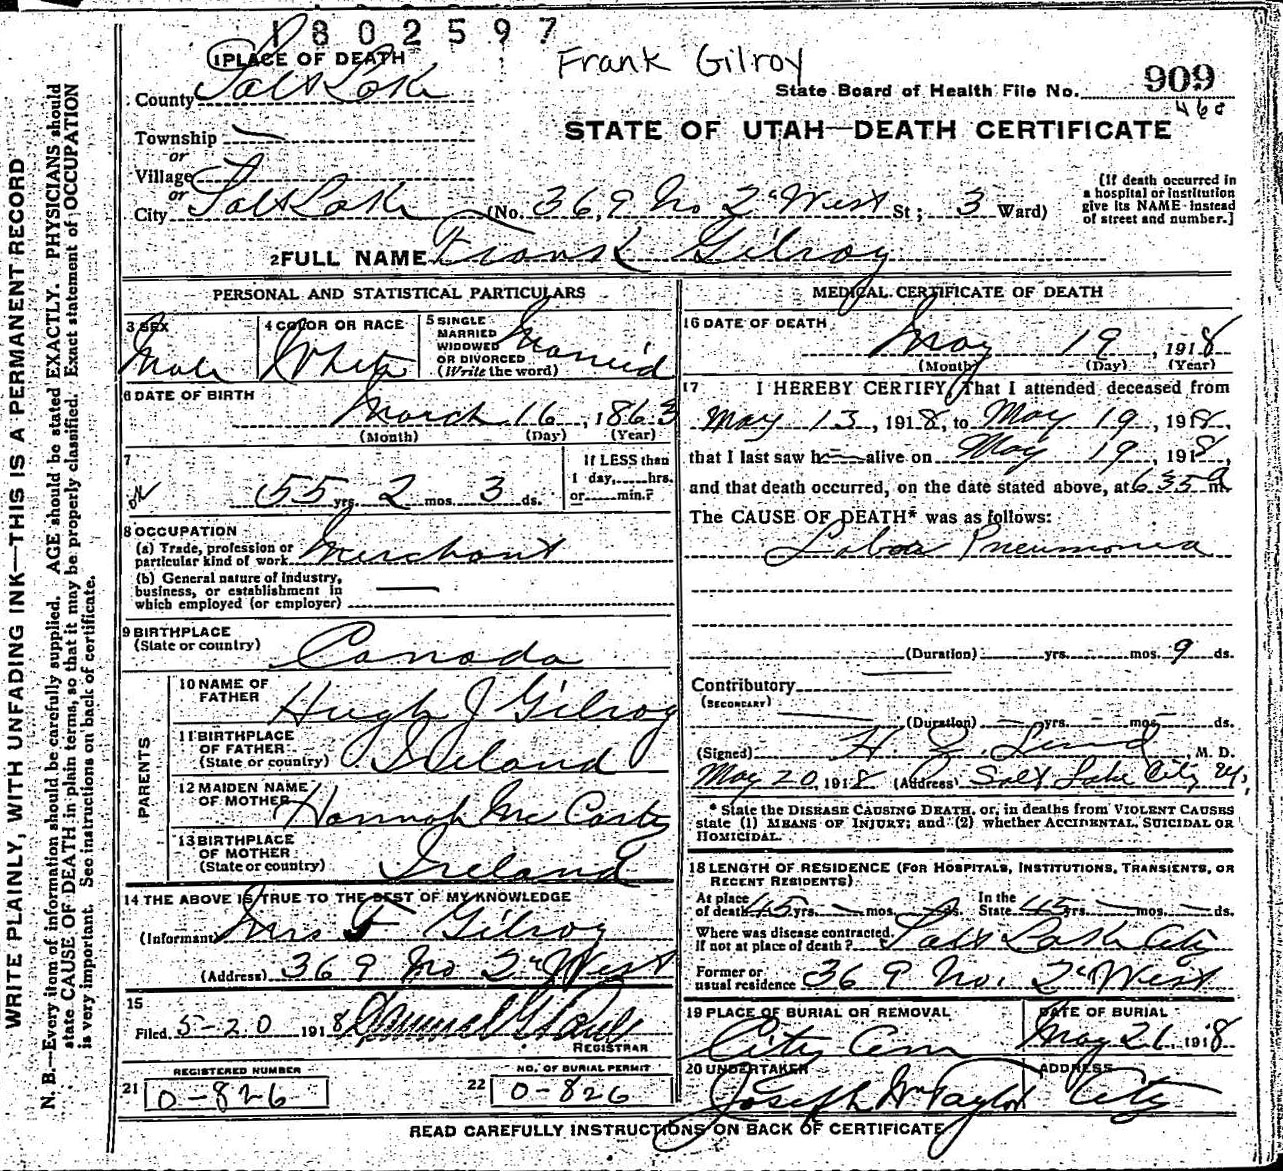 1802597
Frank Gilroy
1 PLACE OF DEATH
County Salt Lake
State Board of Health File No. 909
460
STATE OF UTAH—DEATH CERTIFICATE
Township —
or
Village
or
City Salt Lake (No. 369 No 2d West St; 3 Ward)
(If death occurred in a hospital or institution give its NAME instead of street and number.]
2 FULL NAME Frank Gilroy
PERSONAL AND STATISTICAL PARTICULARS
3 SEX Male
4 COLOR OR RACE White
5 SINGLE MARRIED WIDOWED OR DIVORCED (Write the word) Married
6 DATE OF BIRTH March 16, 1863
(Month) (Day) (Year)
7 55 yrs. 2 mos. 3 ds.
If LESS than 1 day,....hrs. or.....min.?
8 OCCUPATION
(a) Trade, profession or particular kind of work Merchant
(b) General nature of industry, business, or establishment in which employed (or employer) —
9 BIRTHPLACE (State or country) Canada
PARENTS
10 NAME OF FATHER Hugh J Gilroy
11 BIRTHPLACE OF FATHER (State or country) Ireland
12 MAIDEN NAME OF MOTHER Hannah McCarty
13 BIRTHPLACE OF MOTHER (State or country) Ireland
14 THE ABOVE IS TRUE TO THE BEST OF MY KNOWLEDGE
(Informant Mrs F Gilroy
(Address) 369 No 2d West
15
Filed 5-20 1918
REGISTRAR
REGISTERED NUMBER
21 0-826
NO. OF BURIAL PERMIT
22 0-826
MEDICAL CERTIFICATE OF DEATH
16 DATE OF DEATH
May 19, 1918
(Month) (Day) (Year)
17 I HEREBY CERTIFY That I attended deceased from
May 13, 1918, to May 19, 1918,
that I last saw h— alive on May 19, 1918,
and that death occurred, on the date stated above, at 6 35 a m.
The CAUSE OF DEATH* was as follows:
Lobar Pneumonia
(Duration) yrs. mos. 9 ds.
Contributory
(SECONDARY)
(Duration) — yrs. - mos. - ds.
(Signed) H. Z. Lund M. D.
May 20, 1918 (Address) Salt Lake City
* State the DISEASE CAUSING DEATH, or, in deaths from VIOLENT CAUSES
state (1) MEANS OF INJURY; and (2) whether ACCIDENTAL, SUICIDAL OR
HOMICIDAL.
18 LENGTH OF RESIDENCE (FOR HOSPITALS, INSTITUTIONS, TRANSIENTS, OR
RECENT RESIDENTS).
At place of death 45 yrs. — mos. — ds. In the State 45 yrs. — mos. — ds.
Where was disease contracted, If not at place of death? Salt Lake City
Former or usual residence 369 No. 2d West
19 PLACE OF BURIAL OR REMOVAL City Cem
DATE OF BURIAL May 21 1918
20 UNDERTAKER Joseph Wm Taylor
ADDRESS City
READ CAREFULLY INSTRUCTIONS ON BACK OF CERTIFICATE
WRITE PLAINLY, WITH UNFADING INK—THIS IS A PERMANENT RECORD
N. B.—Every item of information should be carefully supplied. AGE should be stated EXACTLY. PHYSICIANS should
state CAUSE OF DEATH in plain terms, so that it may be properly classified. Exact statement of OCCUPATION
is very important. See instructions on back of certificate.